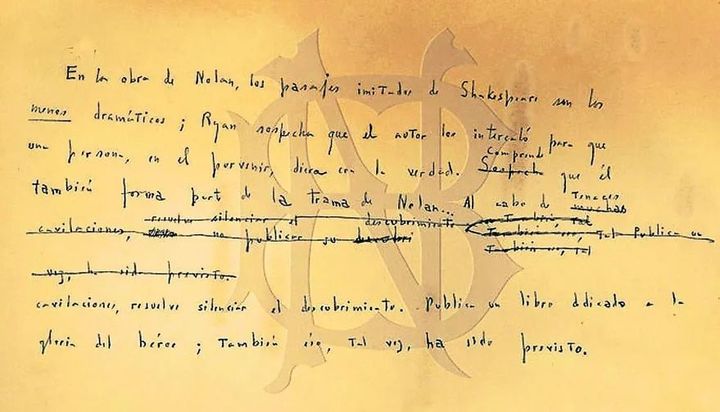 En la obra de Nolan, los pasajes imitados de Shakespeare son los
menos dramáticos; Ryan sospecha que el autor los intercaló para que
una persona, en el porvenir, diera con la verdad. Sospecha Comprende que él
también forma part de la trama de Nolan... Al cabo de muchas tenaces
cavilaciones, resuelve silenciar el descubrimiento no publicar su También eso, tal Publica un
vez, ha sido previsto.
cavilaciones, resuelve silenciar el descubrimiento. Publica un libro ddicado a la
gloria del héroe; también eso, tal vez, ha sido previsto.